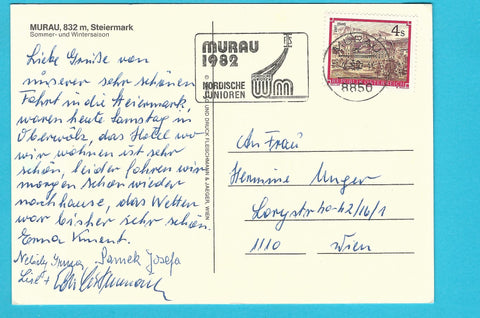 MURAU, 832 m, Steiermark
Sommer- und Wintersaison
Liebe Grüße von
unserer sehr schönen
Fahrt in die Steiermark,
waren heute Samstag in
Oberwölz, das Hotel wo
wir wohnen ist sehr
schön, leider fahren wir
morgen schon wieder
nachhause, das Wetter
war bisher sehr schön.
Erna
Samek Josefa
Lisl +
UND DRUCK: FLEISCHMANN & JAEGER, WIEN
MURAU
1982
NORDISCHE
JUNIOREN
WM
8850
4 S
REPUBLIK ÖSTERREICH
An Frau
Hermine Unger
Lorystr 40-42/16/1
1110 Wien